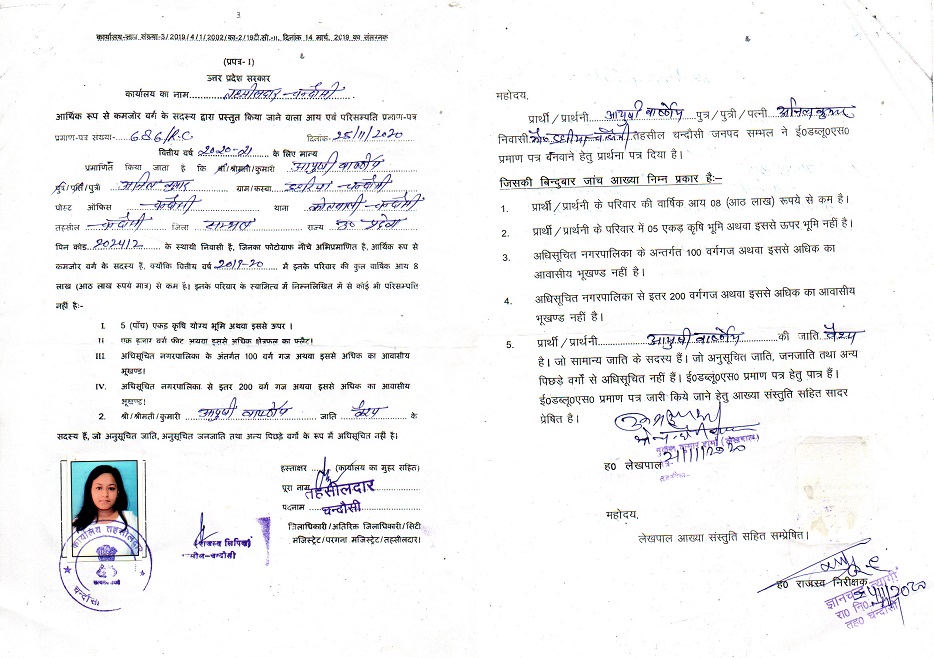 3
कार्यालय-ज्ञाप संख्या-3/2019/4/1/2002/का-2/19टी.सी.-II, दिनांक 14 मार्च, 2019 का संलग्नक
(प्रपत्र-I)
उत्तर प्रदेश सरकार
कार्यालय का नाम तहसीलदार - चन्दौसी
आर्थिक रूप से कमजोर वर्ग के सदस्य द्वारा प्रस्तुत किया जाने वाला आय एवं परिसम्पति प्रमाण-पत्र
प्रमाण-पत्र संख्या- 686/R.C दिनांक- 25/11/2020
वित्तीय वर्ष 2020-21 के लिए मान्य
प्रमाणित किया जाता है कि श्री/श्रीमती/कुमारी आयुषी वार्ष्णेय
पुत्र/पति/पुत्री अनिल कुमार ग्राम/कस्बा चन्दौसी
पोस्ट ऑफिस चन्दौसी थाना कोतवाली - चन्दौसी
तहसील चन्दौसी जिला सम्भल राज्य उ० प्रदेश
पिन कोड 202412 के स्थायी निवासी है, जिनका फोटोग्राफ नीचे अभिप्रमाणित है, आर्थिक रूप से
कमजोर वर्ग के सदस्य है, क्योंकि वित्तीय वर्ष 2019-20 में इनके परिवार की कुल वार्षिक आय 8
लाख (आठ लाख रूपये मात्र) से कम है। इनके परिवार के स्वामित्व में निम्नलिखित में से कोई भी परिसम्पति
नहीं है:-
I. 5 (पाँच) एकड़ कृषि योग्य भूमि अथवा इससे ऊपर ।
II एक हजार वर्ग फीट अथवा इससे अधिक क्षेत्रफल का फ्लैट।
III. अधिसूचित नगरपालिका के अंतर्गत 100 वर्ग गज अथवा इससे अधिक का आवासीय
भूखण्ड।
IV. अधिसूचित नगरपालिका से इतर 200 वर्ग गज अथवा इससे अधिक का आवासीय
भूखण्ड।
2. श्री/श्रीमती/कुमारी आयुषी वार्ष्णेय जाति वैश्य के
सदस्य हैं, जो अनुसूचित जाति, अनुसूचित जनजाति तथा अन्य पिछड़े वर्गों के रूप में अधिसूचित नहीं है।
हस्ताक्षर (कार्यालय का मुहर सहित)
पूरा नाम तहसीलदार
पदनाम चन्दौसी
जिलाधिकारी/अतिरिक्त जिलाधिकारी/सिटी
मजिस्ट्रेट/परगना मजिस्ट्रेट/तहसीलदार।
राजस्व लिपिक
चन्दौसी
कार्यालय तहसीलदार
चन्दौसी
महोदय,
प्रार्थी / प्रार्थनी आयुषी वार्ष्णेय पुत्र / पुत्री / पत्नी अनिल कुमार
निवासी चन्दौसी तहसील चन्दौसी जनपद सम्भल ने ई0डब्लू0एस0
प्रमाण पत्र बनवाने हेतु प्रार्थना पत्र दिया है।
जिसकी बिन्दुबार जांच आख्या निम्न प्रकार है:-
1. प्रार्थी / प्रार्थनी के परिवार की वार्षिक आय 08 (आठ लाख) रूपये से कम है।
2. प्रार्थी / प्रार्थनी के परिवार में 05 एकड़ कृषि भूमि अथवा इससे ऊपर भूमि नहीं है।
3. अधिसूचित नगरपालिका के अन्तर्गत 100 वर्गगज अथवा इससे अधिक का
आवासीय भूखण्ड नहीं है।
4. अधिसूचित नगरपालिका से इतर 200 वर्गगज अथवा इससे अधिक का आवासीय
भूखण्ड नहीं है।
5. प्रार्थी / प्रार्थनी आयुषी वार्ष्णेय की जाति वैश्य
है। जो सामान्य जाति के सदस्य हैं। जो अनुसूचित जाति, जनजाति तथा अन्य
पिछड़े वर्गों से अधिसूचित नहीं हैं। ई0डब्लू0एस0 प्रमाण पत्र हेतु पात्र हैं।
ई0डब्लू0एस0 प्रमाण पत्र जारी किये जाने हेतु आख्या संस्तुति सहित सादर
प्रेषित है।
ह0 लेखपाल 21/11/2020
महोदय,
लेखपाल आख्या संस्तुति सहित सम्प्रेषित।
ह0 राजस्व निरीक्षक
ज्ञानचन्द त्यागी
रा0 नि0
तह0 चन्दौसी